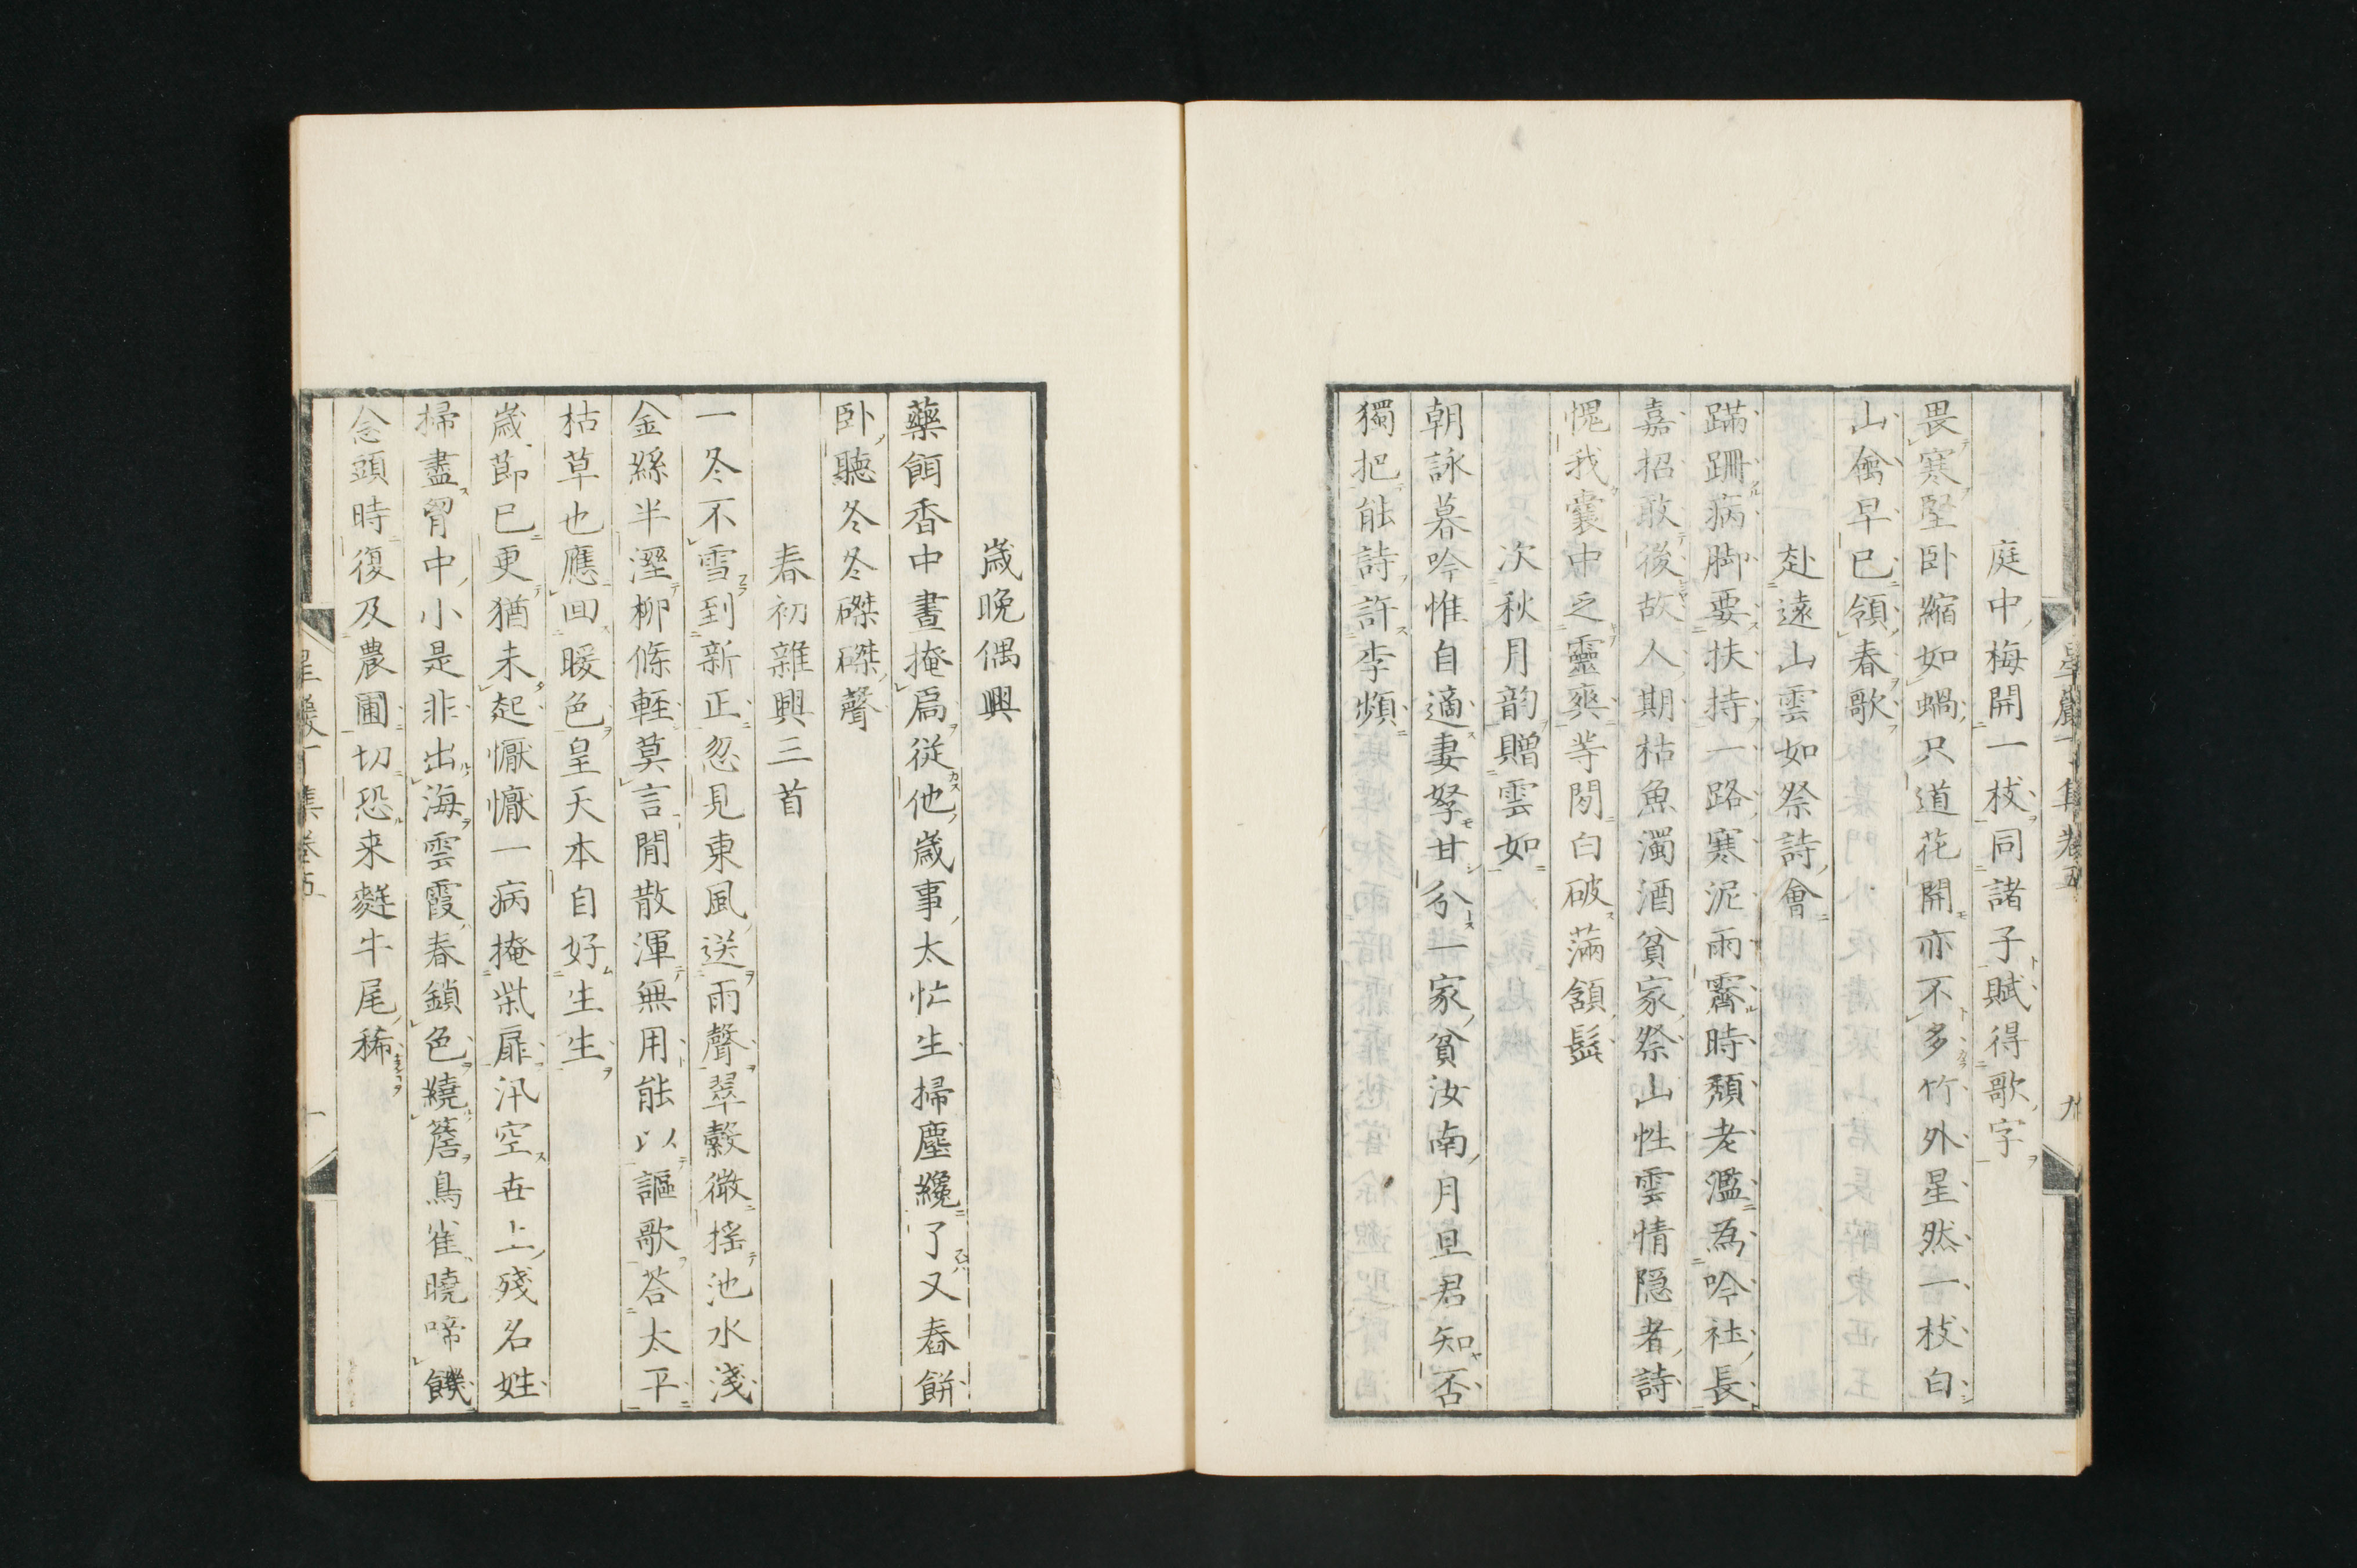 庭中梅開一枝同諸子賦得歌字
畏寒堅卧縮如蝸只道花開亦不多竹外星然一枝白
山禽早已領春歌
赴遠山雲如祭詩會
蹣跚病脚要扶持一路寒泥雨霽時頽老濫爲吟社長
嘉招敢後故人期枯魚濁酒貧家祭山性雲情隠者詩
愧我囊中乏靈爽等閒白破滿頷髭
次秋月韵贈雲如
朝詠暮吟惟自適妻孥甘分一家貧汝南月旦君知否
獨把能詩許李頻
歳晩偶興
藥餌香中晝掩扃從他歳事太忙生掃塵纔了又舂餅
卧聽冬冬磔磔聲
春初雜興三首
一冬不雪到新正忽見東風送雨聲翠縠微搖池水淺
金絲半溼柳條輕莫言閒散渾無用能以謳歌荅太平
枯草也應回暖色皇天本自好生生
歳莭已更猶未起懨懨一病掩柴扉汛空世上殘名姓
掃盡胷中小是非出海雲霞春鎖色繞簷鳥雀曉啼饑
念頭時復及農圃切恐来麰牛尾稀